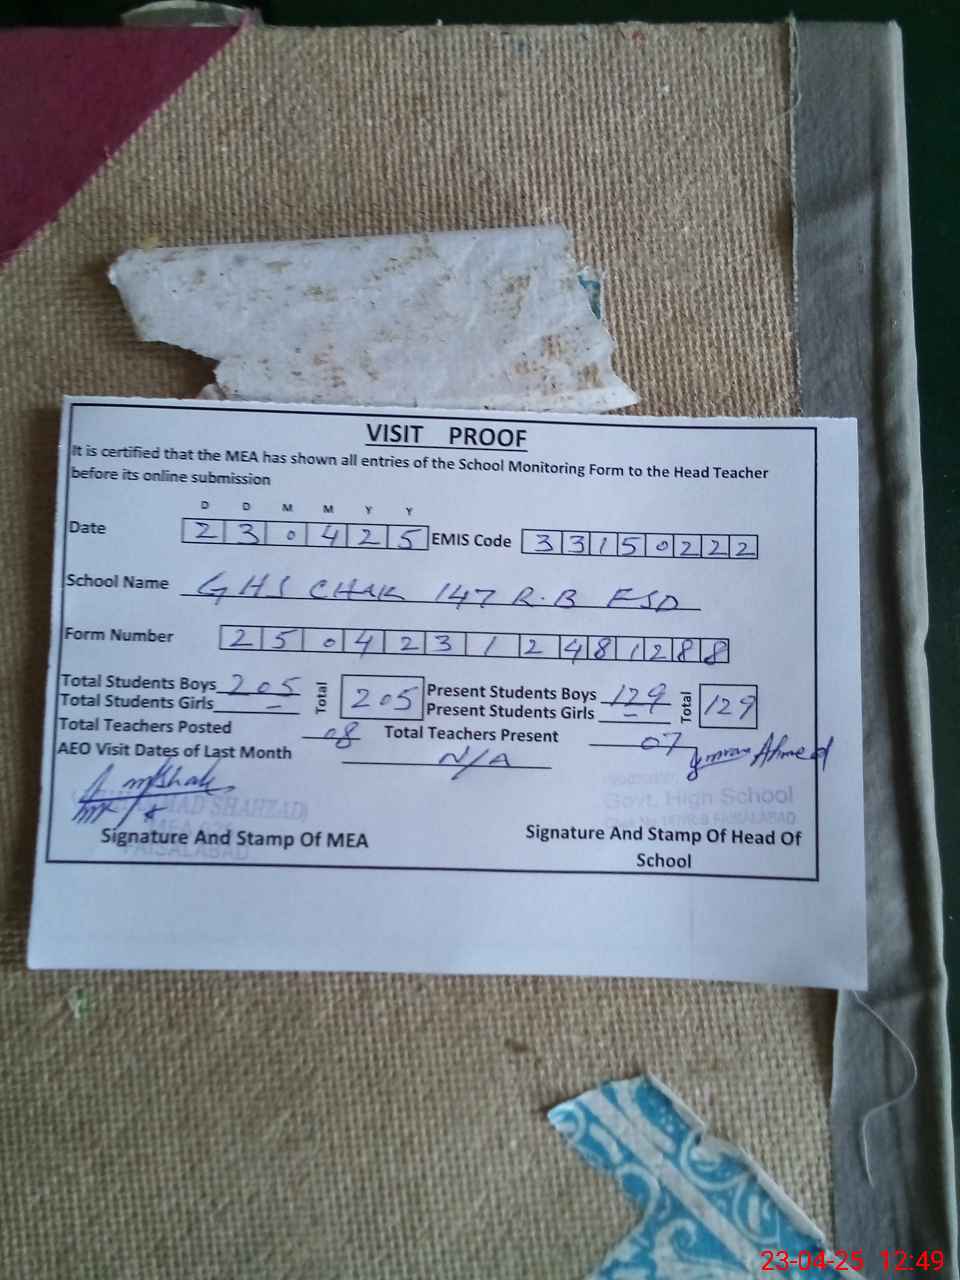 VISIT PROOF
It is certified that the MEA has shown all entries of the School Monitoring Form to the Head Teacher
before its online submission
D D M M Y Y
Date 2 3 0 4 2 5 EMIS Code 3 3 1 5 0 2 2 2
School Name GHS CHAK 147 R.B FSD
Form Number 2 5 0 4 2 3 1 2 4 8 1 2 8 8
Total Students Boys 205 Total 205 Present Students Boys 129 Total 129
Total Students Girls - Present Students Girls -
Total Teachers Posted 08 Total Teachers Present 07
AEO Visit Dates of Last Month N/A Ahmed
SHAHZAD)
Govt. High School
FAISALABAD
Signature And Stamp Of MEA
Signature And Stamp Of Head Of
School
FAISALABAD
23-04-25 12:49